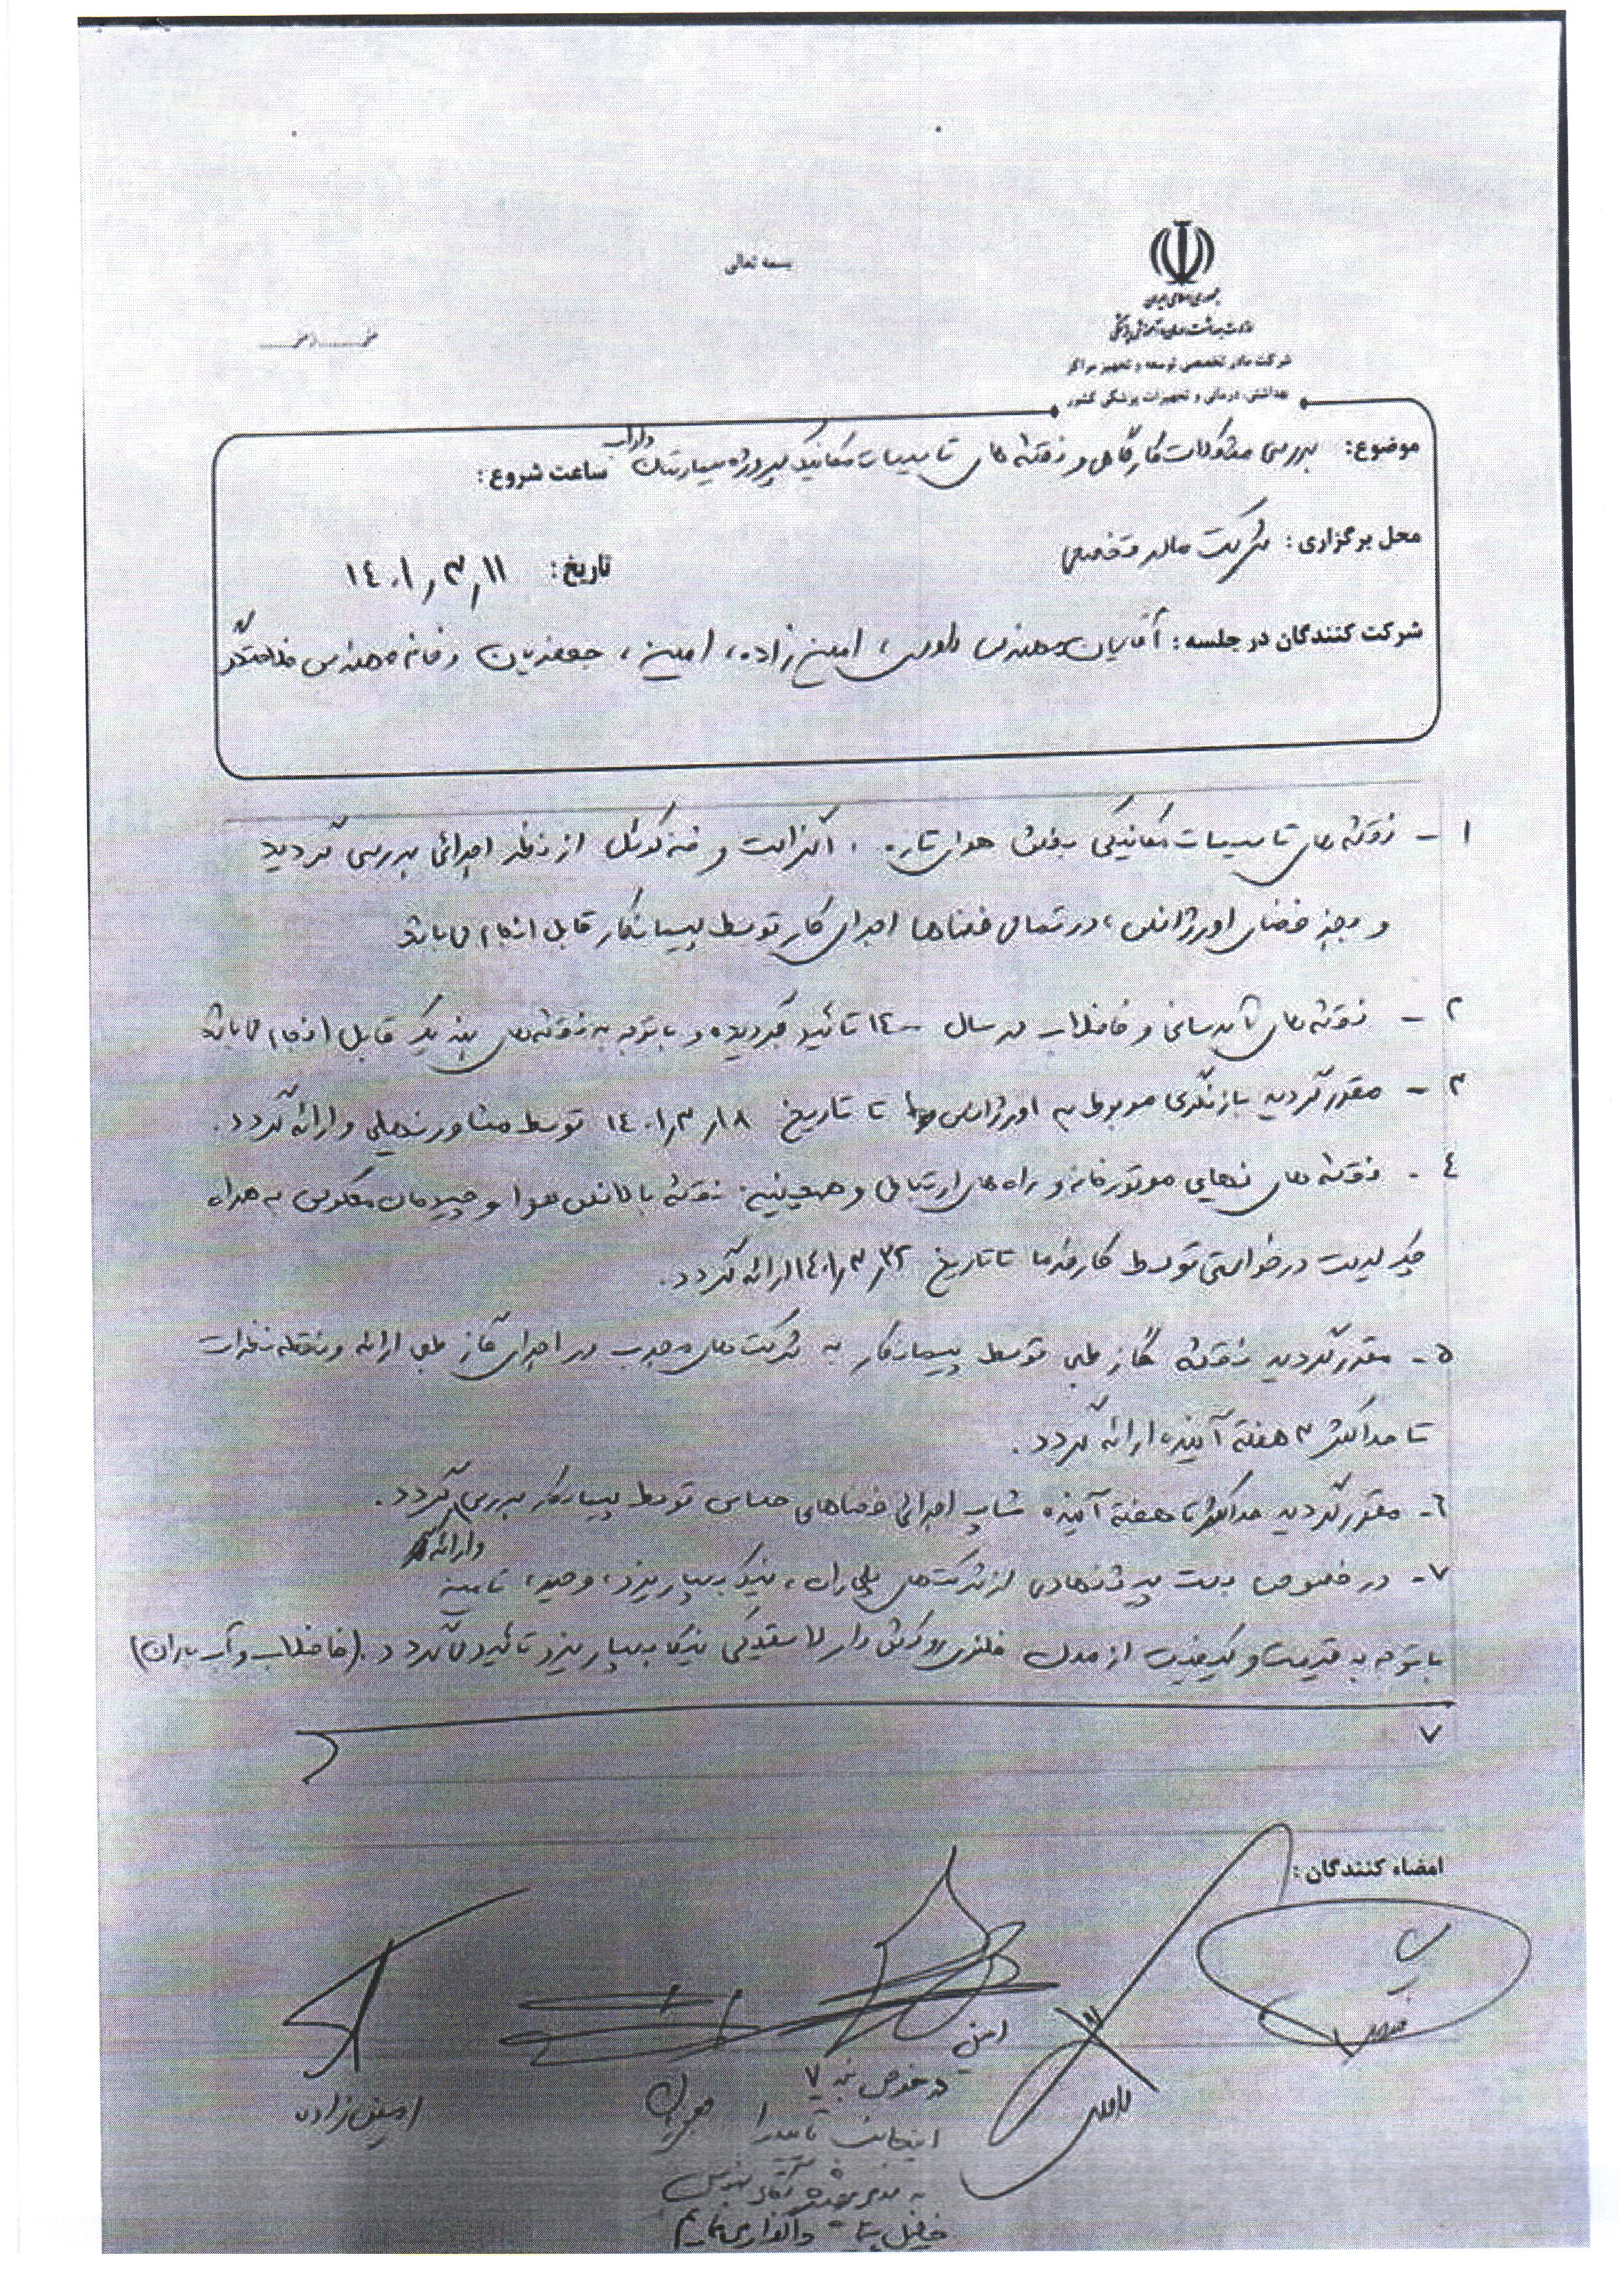 بسمه تعالی
جمهوری اسلامی ایران
وزارت بهداشت، درمان و آموزش پزشکی
شرکت مادر تخصصی توسعه و تجهیز مراکز
بهداشتی، درمانی و تجهیزات پزشکی کشور
موضوع: بررسی مشکلات کارگاهی و نقشه های تاسیسات مکانیک پروژه بیمارستان داراب ساعت شروع:
محل برگزاری: شرکت مادر تخصصی
تاریخ: ۱۴۰۱٫۳٫۱۱
شرکت کنندگان در جلسه: آقایان مهندس داودی، امین زاده، امین، جعفریان و خانم مهندس
۱- نقشه های تاسیسات مکانیکی بخش هوای تازه، اگزاست و فن کوئل از نظر اجرائی بررسی گردید
و بجز فضای اورژانس، در تمامی فضاها اجرای کار توسط پیمانکار قابل انجام می باشد
۲- نقشه های آبرسانی و فاضلاب در سال ۱۴۰۰ تائید گردیده و با توجه به نقشه های قابل انجام می باشد
۳- مقرر گردید بازنگری مربوط به اورژانس تا تاریخ ۱۴۰۱٫۳٫۱۸ توسط مشاور نهایی و ارائه گردد.
۴- نقشه های نهایی موتورخانه و راه های ارتباطی و همچنین نقشه بالانس هوا و چیدمان معکوس به همراه
چک لیست درخواستی توسط کارفرما تا تاریخ ۱۴۰۱٫۳٫۲۲ ارائه گردد.
۵- مقرر گردید نقشه گاز طبی توسط پیمانکار به شرکت های مجرب در اجرای گاز طبی ارائه و نقطه نظرات
تا حداکثر ۳ هفته آینده ارائه گردد.
۶- مقرر گردید حداکثر تا هفته آینده شاپ اجرائی فضاهای حساس توسط پیمانکار بررسی گردد.
و ارائه
۷- در خصوص بست پیشنهادی از شرکت های پلی ران، نیک بسپار یزد، وحید، تامین
با توجه به قیمت و کیفیت از مدل فلزی روکش دار لاستیکی نیک بسپار یزد تائید می گردد. (فاضلاب و آب باران)
۷
امضاء کنندگان:
داودی
امین
در خصوص بند ۷
اینجانب تایید را
به مدیر پروژه آقای مهندس
واگذاری می نمایم
جعفریان
امین زاده